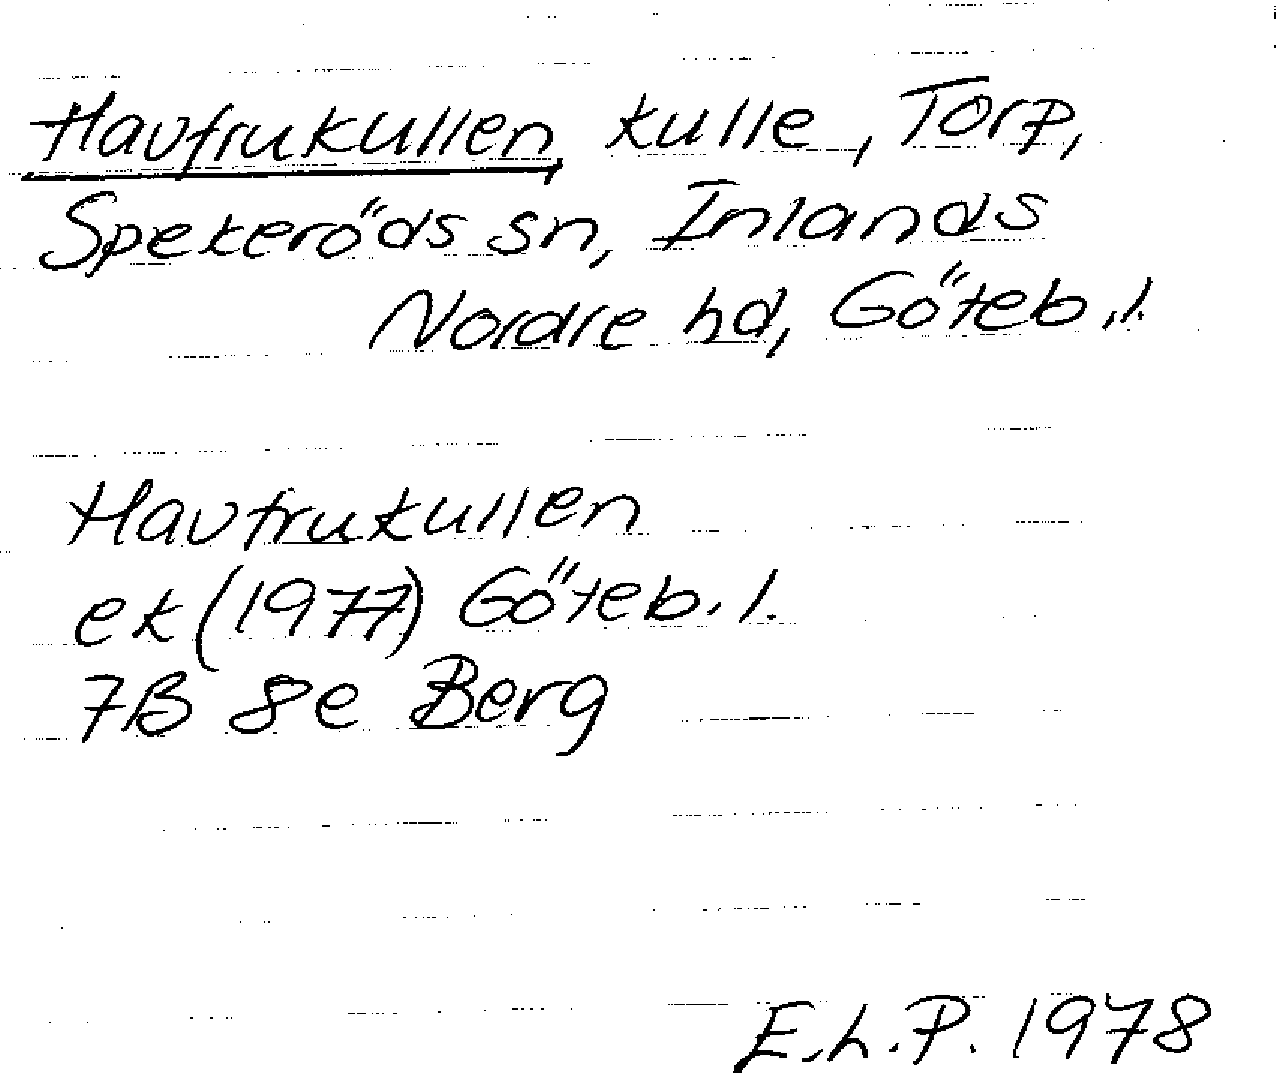 Havfrukullen, kulle, Torp,
Spekeröds sn, Inlands
Nordre hd, Göteb.l.
Havfrukullen
ek (1977) Göteb. l.
7B 8e Berg
E.L.P. 1978